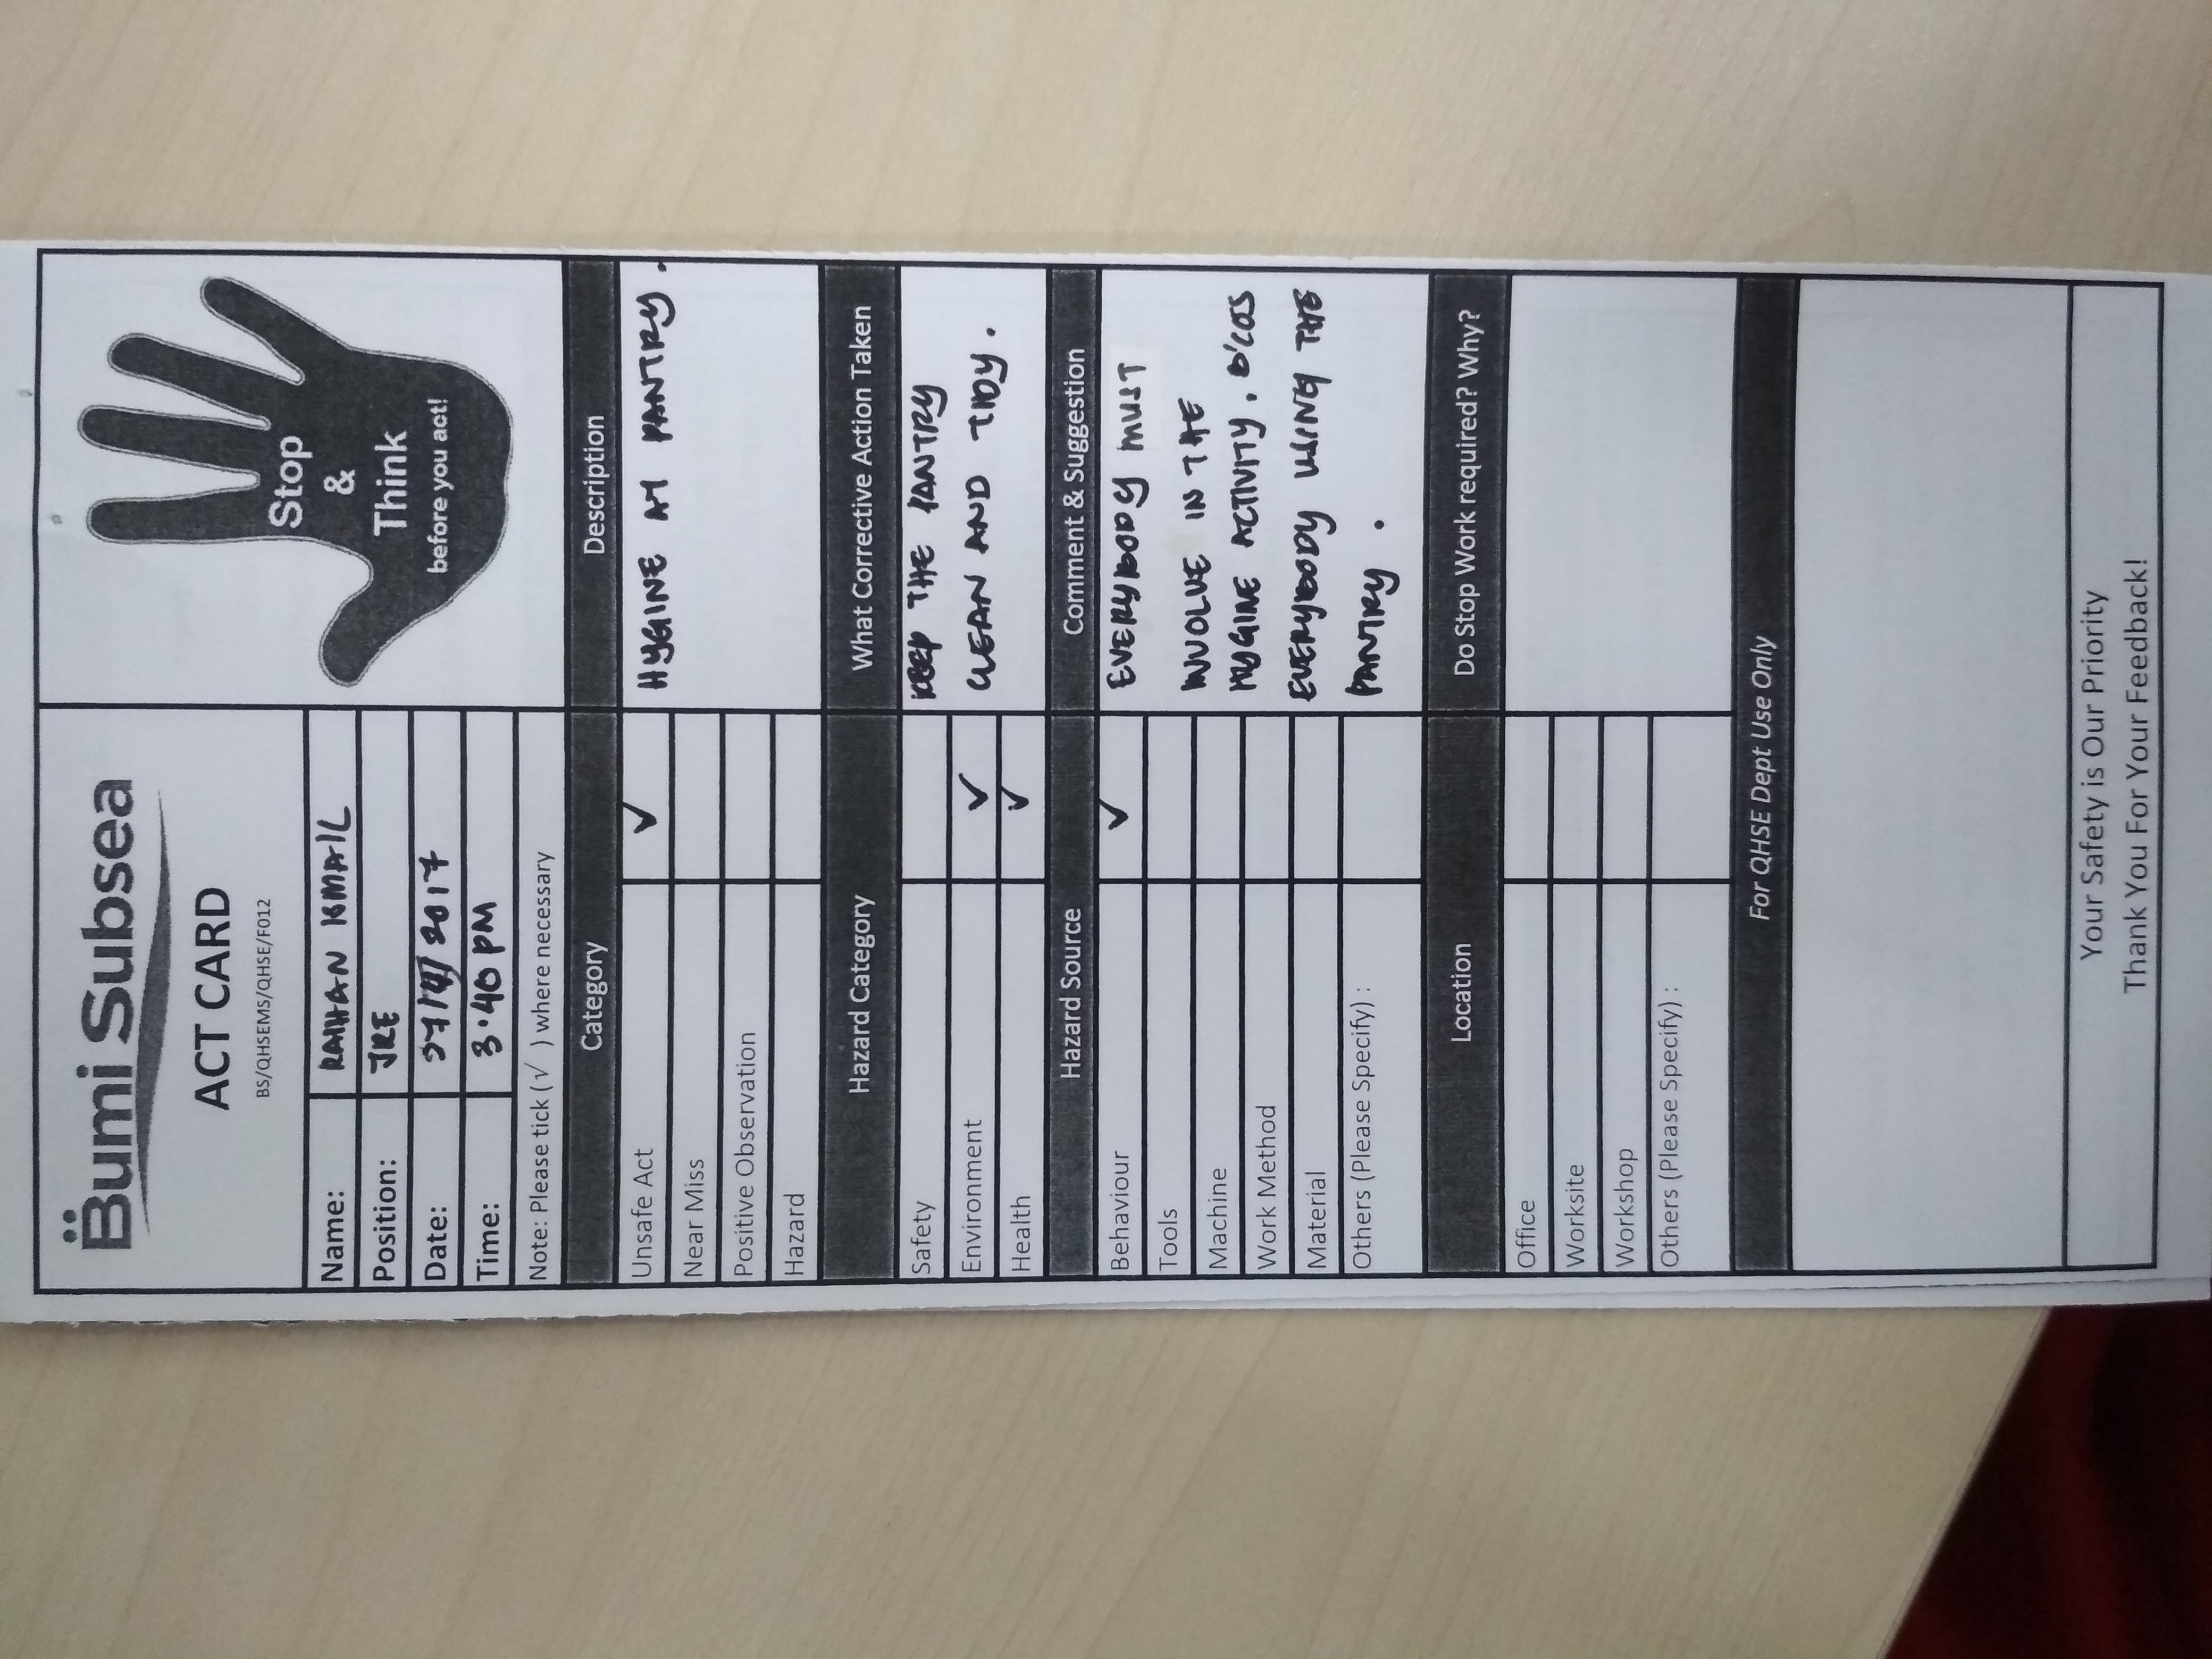 Bumi Subsea
ACT CARD
BS/QHSEMS/QHSE/F012
Stop
&
Think
before you act!
Name: RAIHAN
Position: JRE
Date: 2017
Time: 3.40 PM
Note: Please tick (√ ) where necessary
Category Description
Unsafe Act ✓ HYGINE AT PANTRY.
Near Miss
Positive Observation
Hazard
Hazard Category What Corrective Action Taken
Safety KEEP THE PANTRY
Environment ✓ CLEAN AND TIDY.
Health ✓
Hazard Source Comment & Suggestion
Behaviour ✓ EVERYBODY MUST
Tools
Machine INVOLVE IN THE
Work Method HYGINE ACTIVITY. B'COS
Material EVERYBODY USING THE
Others (Please Specify) : PANTRY.
Location Do Stop Work required? Why?
Office
Worksite
Workshop
Others (Please Specify) :
For QHSE Dept Use Only
Your Safety is Our Priority
Thank You For Your Feedback!